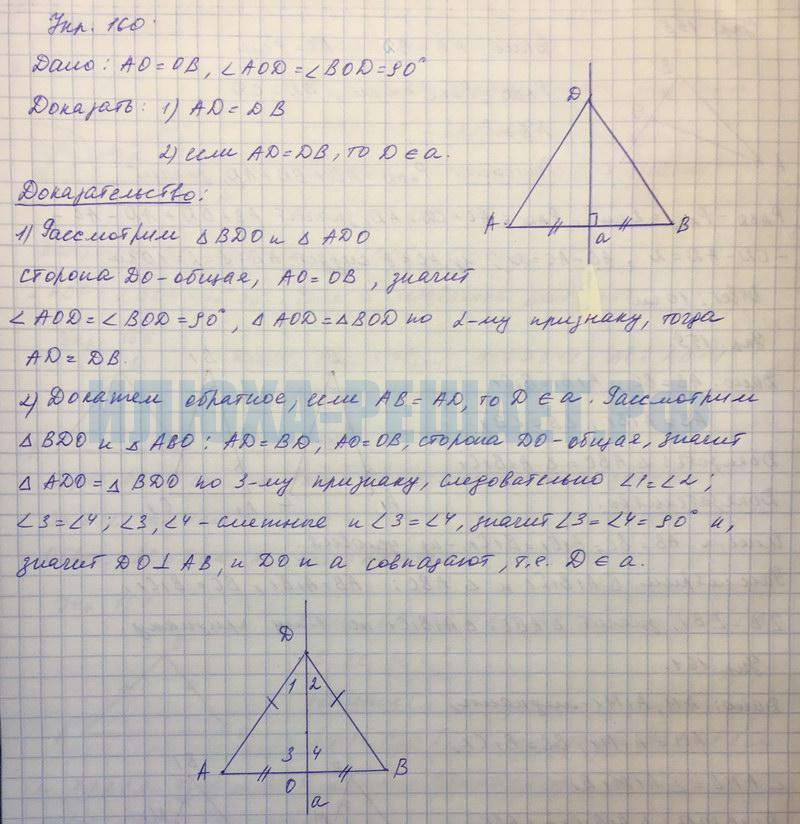 Упр. 160.
Дано: AO = OB, ∠AOD = ∠BOD = 90°
Доказать: 1) AD = DB
2) если AD = DB, то D ∈ a.
Доказательство:
1) Рассмотрим △ BDO и △ ADO
сторона DO - общая, AO = OB, значит
∠AOD = ∠BOD = 90°, △ AOD = △ BOD по 2-му признаку, тогда
AD = DB.
2) Докажем обратное, если AB = AD, то D ∈ a. Рассмотрим
△ BDO и △ ABO: AD = BD, AO = OB, сторона DO - общая, значит
△ ADO = △ BDO по 3-му признаку, следовательно ∠1 = ∠2;
∠3 = ∠4; ∠3, ∠4 - смежные и ∠3 = ∠4, значит ∠3 = ∠4 = 90° и,
значит DO ⊥ AB, и DO и a совпадают, т.е. D ∈ a.
D
A
B
a
D
1 2
3 4
A
B
O
a